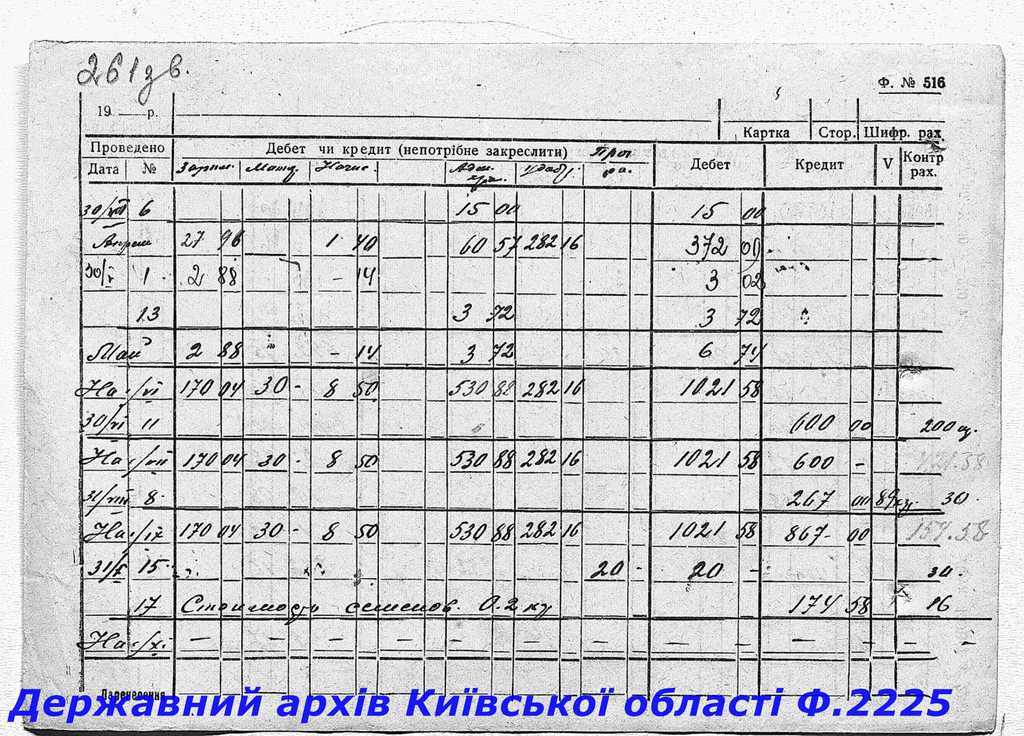 261 зв.
Ф. № 516
19 р.
Картка Стор. Шифр. рах
Проведено Дебет чи кредит (непотрібне закреслити) Дебет Кредит V Контр рах.
Дата №
30/VII 6 15 00 15 00
Апрель 27 96 1 40 60 57 282 16 372 09
30/V 1 2 88 - 14 3 02
13 3 72 3 72
Май 2 88 - 14 3 72 6 74
На 1/VI 170 04 30 - 8 50 530 88 282 16 1021 58
30/VI 11 600 00 200
На 1/VII 170 04 30 - 8 50 530 88 282 16 1021 58 600 -
31/VIII 8 267 00 30
На 1/IX 170 04 30 - 8 50 530 88 282 16 1021 58 867 - 00 154.58
31/X 15 20 - 20 - 30
17 Стоимость 174 58 16
На 1/XI - - - - - - - - - - -
Перенесення
Державний архів Київської області Ф.2225